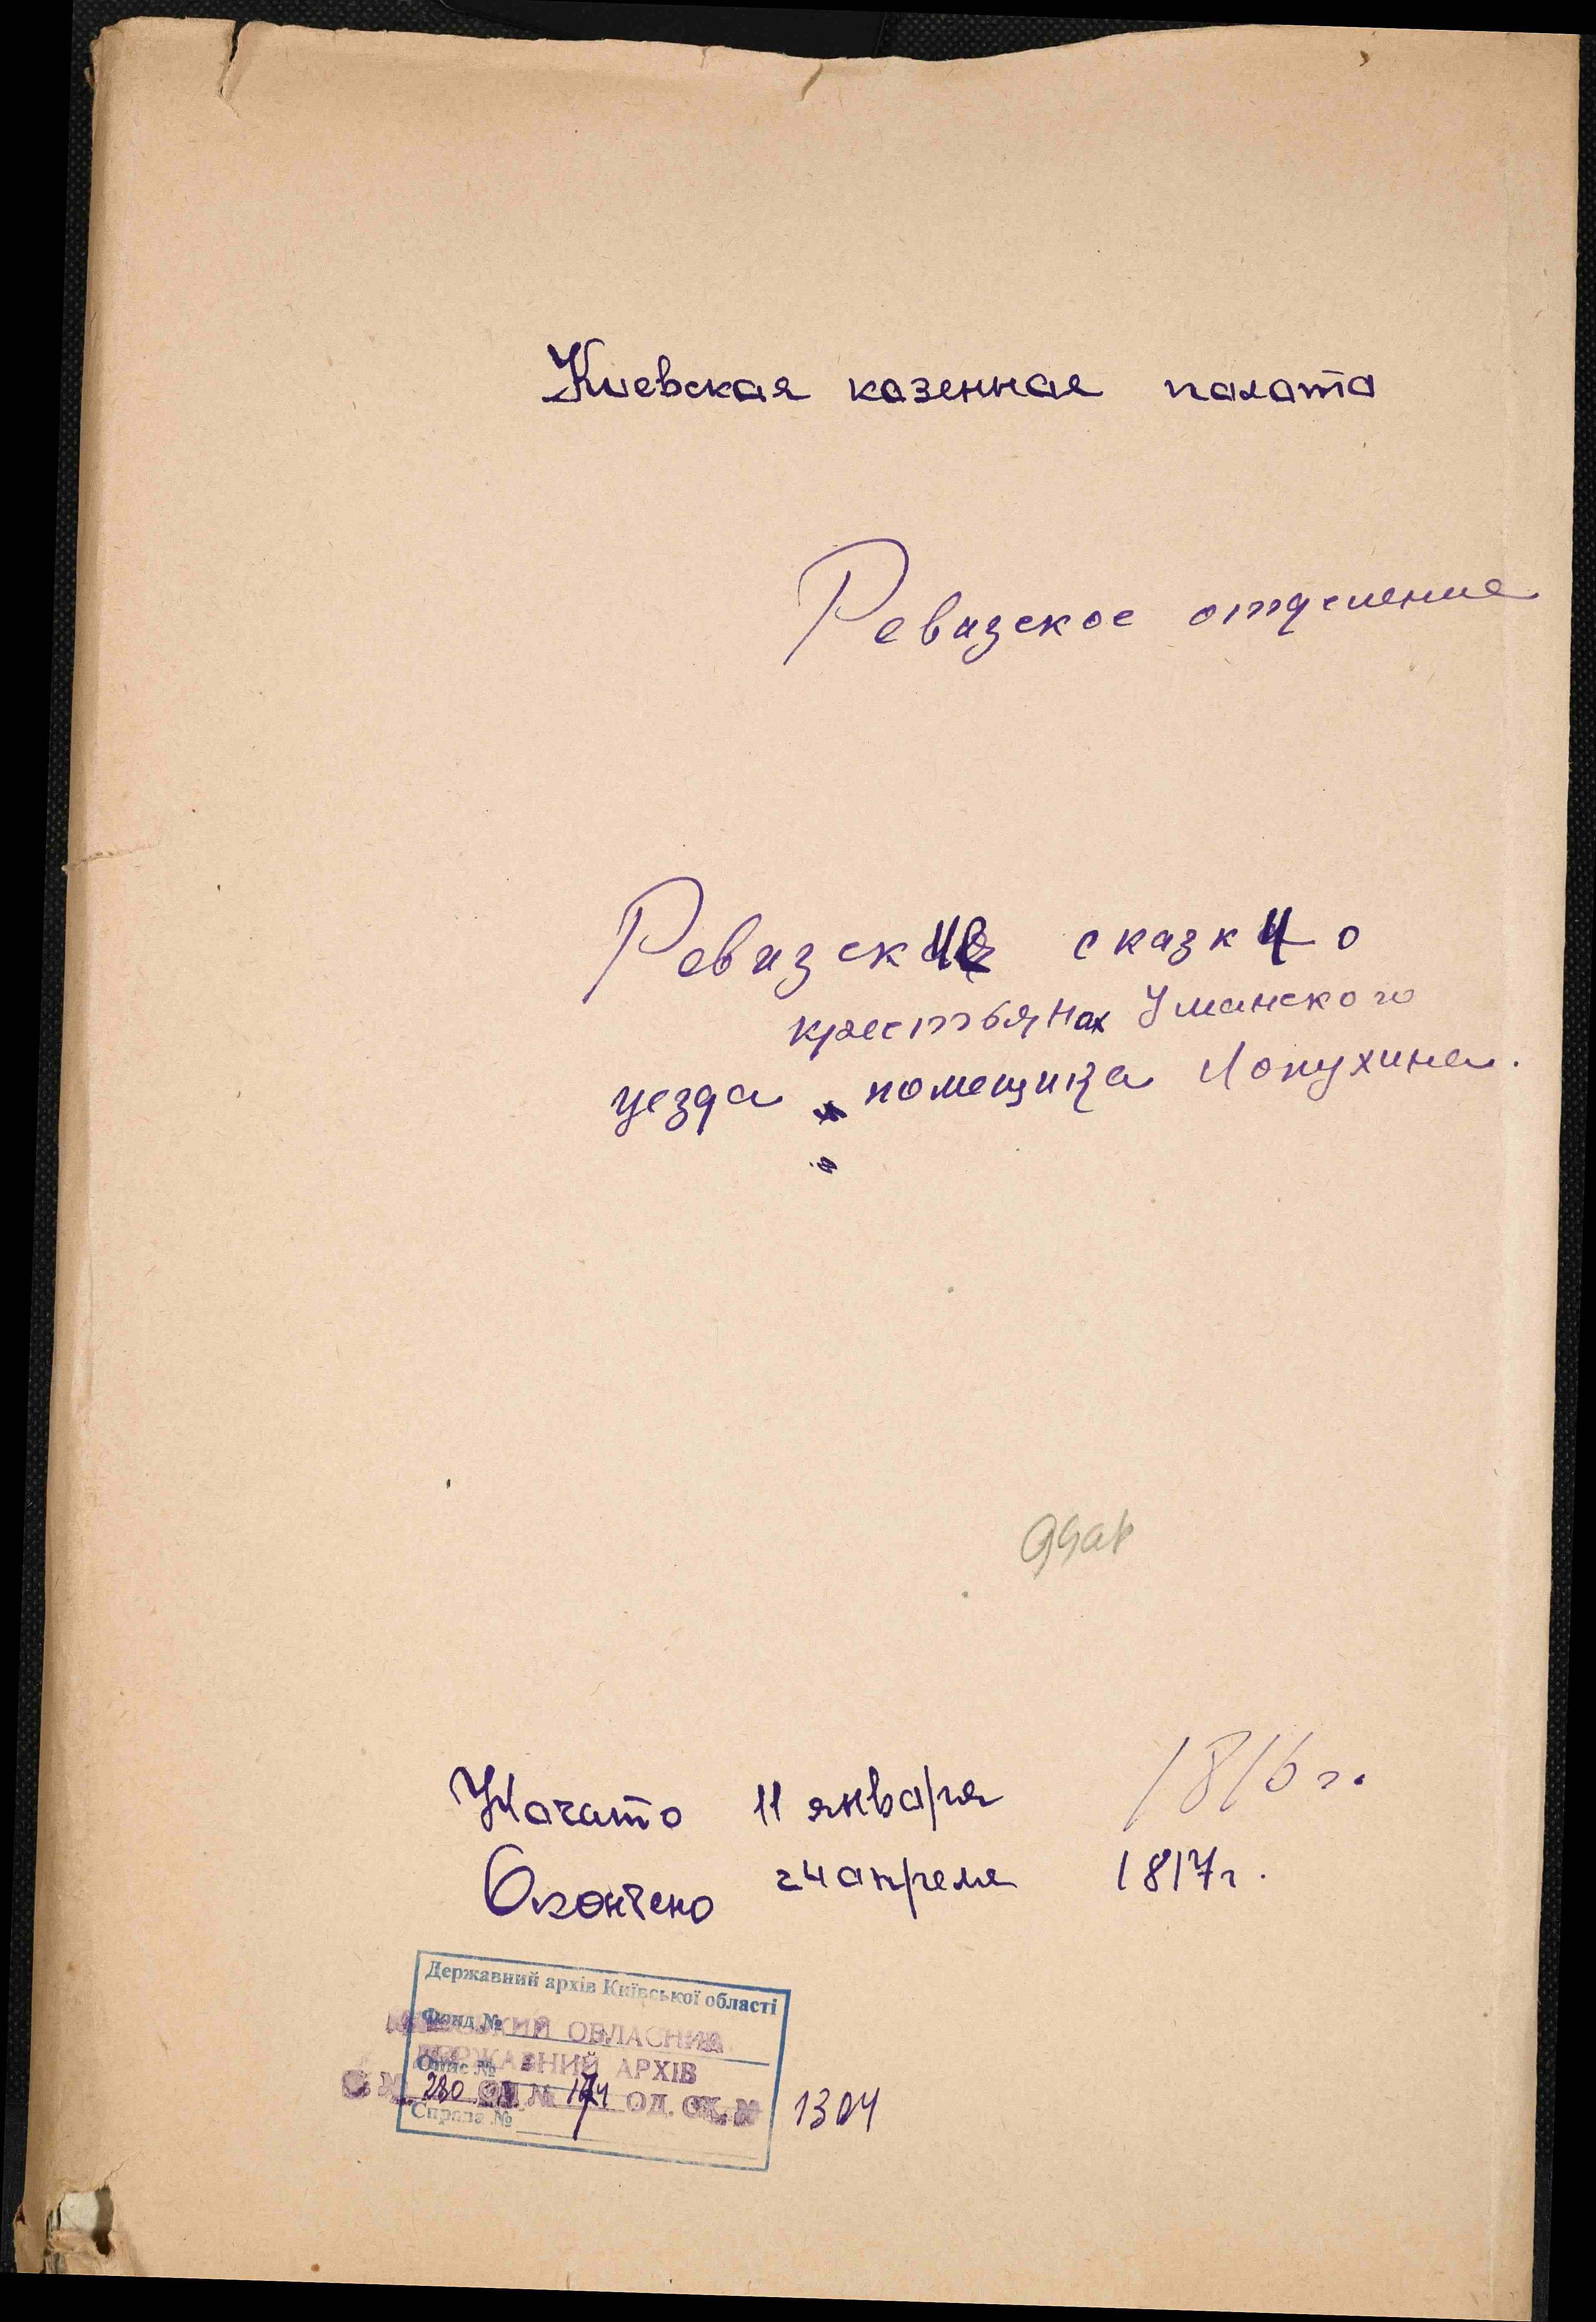 Киевская казенная палата
Ревизское отделение
Ревизские сказки о
крестьянах Уманского
уезда помещика Лопухина.
Начато 11 января 1816 г.
Окончено 24 апреля 1817 г.
Державний архів Київської області
Фонд №
ОБЛАСНИЙ
Опис №
ДЕРЖАВНИЙ АРХІВ
280 ОД. 1304
Справа №